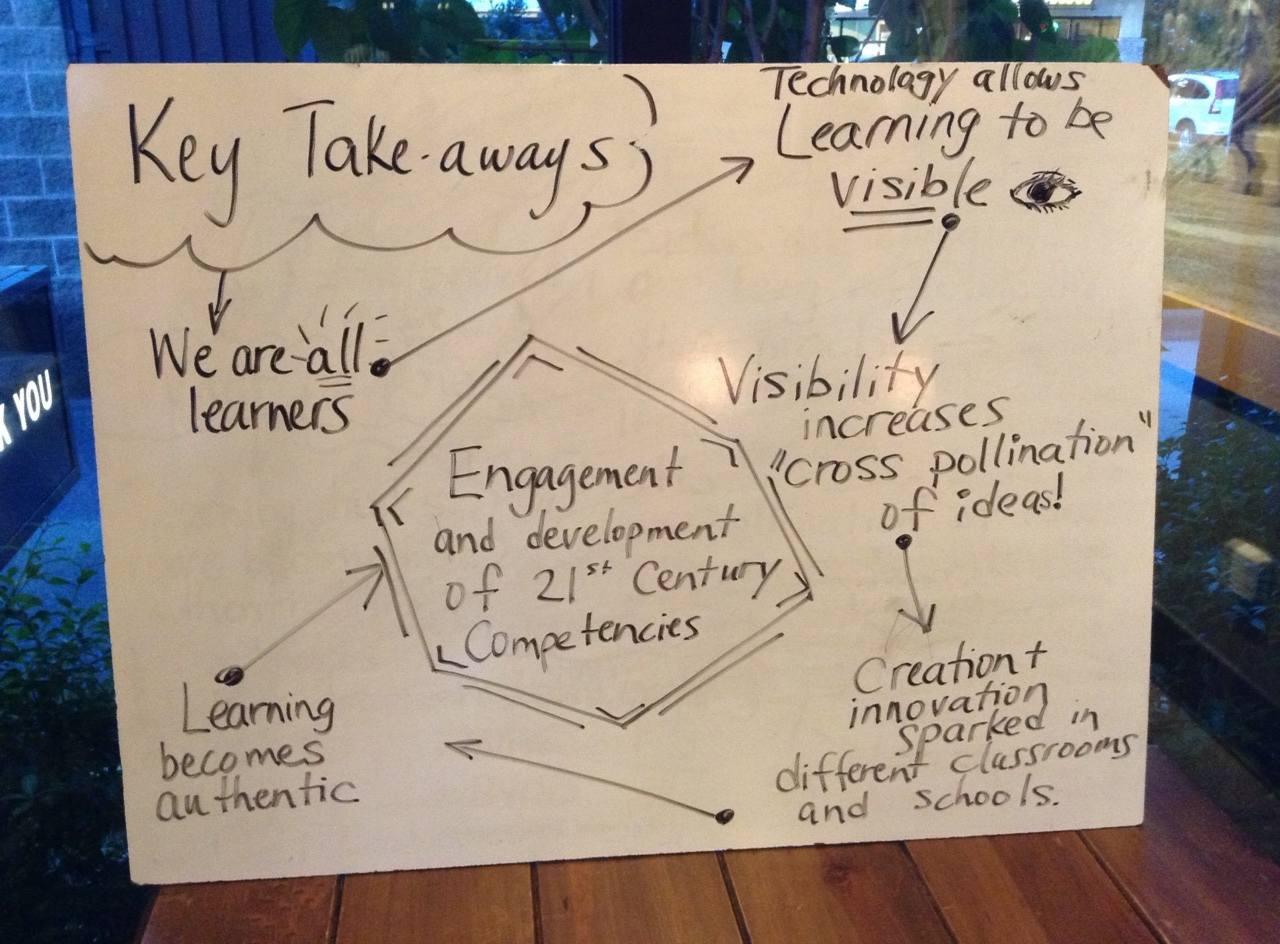 Key Take-aways
Technology allows
Learning to be
visible
We are all
learners
Visibility
increases
"cross pollination"
of ideas!
Engagement
and development
of 21st Century
Competencies
Creation +
innovation
sparked in
different classrooms
and schools.
Learning
becomes
authentic
YOU